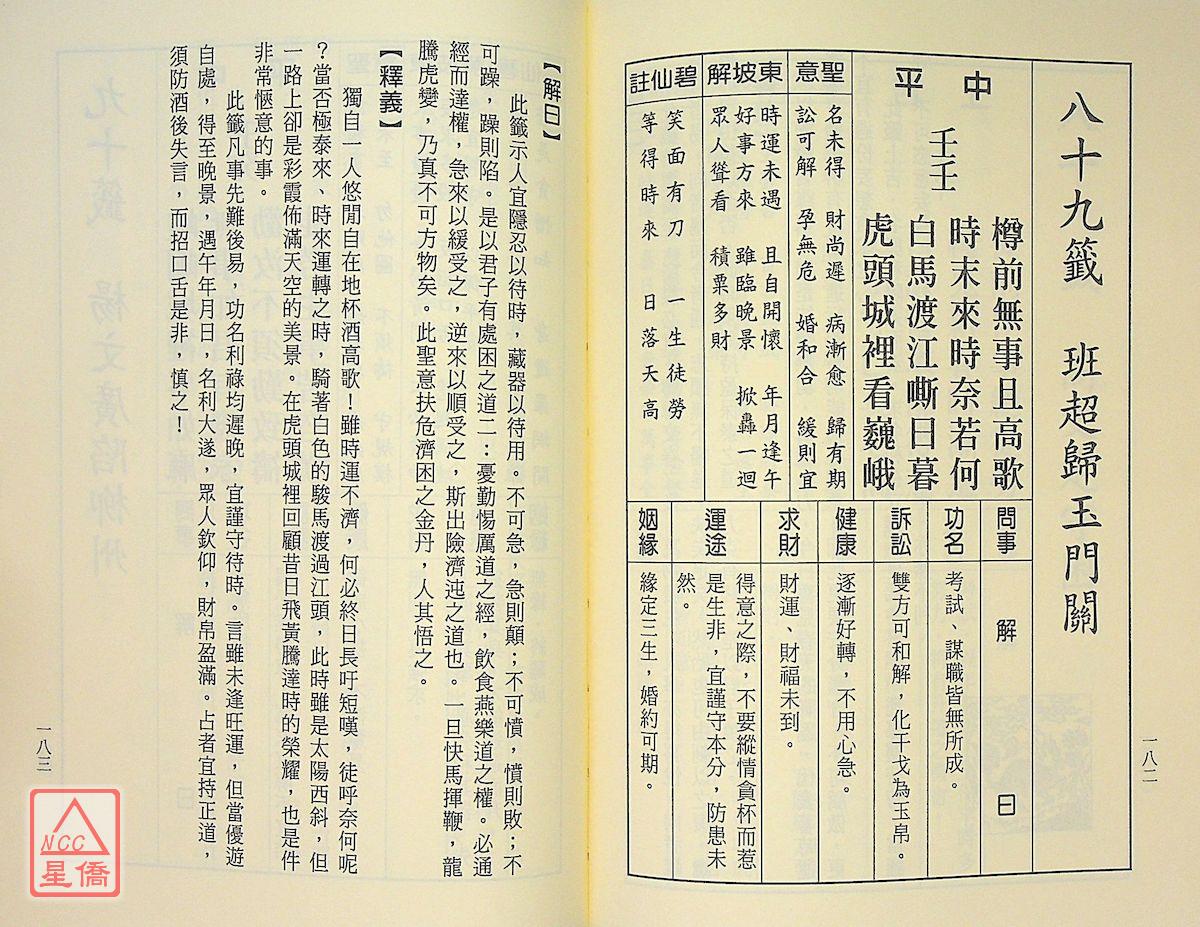 八十九籤　班超歸玉門關
中平
壬壬
樽前無事且高歌
時末來時奈若何
白馬渡江嘶日暮
虎頭城裡看巍峨
聖意
名未得　財尚遲　病漸愈　歸有期
訟可解　孕無危　婚和合　緩則宜
東坡解
時運未遇　且自開懷　年月逢午
好事方來　雖臨晚景　掀轟一迴
眾人聳看　積粟多財
碧仙註
笑面有刀　一生徒勞
等得時來　日落天高
問事　解曰
功名　考試、謀職皆無所成。
訴訟　雙方可和解，化干戈為玉帛。
健康　逐漸好轉，不用心急。
求財　財運、財福未到。
運途　得意之際，不要縱情貪杯而惹
是生非，宜謹守本分，防患未
然。
姻緣　緣定三生，婚約可期。
一八二
【解曰】
此籤示人宜隱忍以待時，藏器以待用。不可急，急則顛；不可憤，憤則敗；不
可躁，躁則陷。是以君子有處困之道二：憂勤惕厲道之經，飲食燕樂道之權。必通
經而達權，急來以緩受之，逆來以順受之，斯出險濟迍之道也。一旦快馬揮鞭，龍
騰虎變，乃真不可方物矣。此聖意扶危濟困之金丹，人其悟之。
【釋義】
獨自一人悠閒自在地杯酒高歌！雖時運不濟，何必終日長吁短嘆，徒呼奈何呢
？當否極泰來、時來運轉之時，騎著白色的駿馬渡過江頭，此時雖是太陽西斜，但
一路上卻是彩霞佈滿天空的美景。在虎頭城裡回顧昔日飛黃騰達時的榮耀，也是件
非常愜意的事。
此籤凡事先難後易，功名利祿均遲晚，宜謹守待時。言雖未逢旺運，但當優遊
自處，得至晚景，遇午年月日，名利大遂，眾人欽仰，財帛盈滿。占者宜持正道，
須防酒後失言，而招口舌是非，慎之！
一八三
NCC
星僑